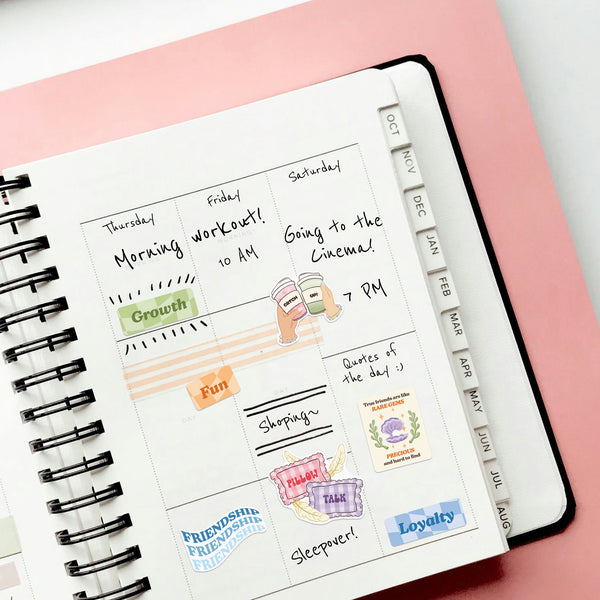 Thursday
Morning
Growth
Friday
workout!
10 AM
Fun
Saturday
Going to the
Cinema!
CATCH
UP!
7 PM
Shoping~
PILLOW
TALK
FRIENDSHIP
FRIENDSHIP
FRIENDSHIP
Sleepover!
Quotes of
the day :)
True friends are like
RARE GEMS
PRECIOUS
and hard to find
Loyalty
OCT
NOV
DEC
JAN
FEB
MAR
APR
MAY
JUN
JUL
AUG